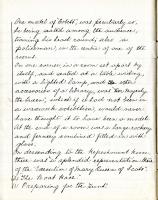 One model of "Cobett", was peculiarly so,
he being seated among the audience,
turning his head round; also a
policeman, in the centre of one of the
rooms.
In one corner, in a room set apart by
itself, and seated at a table writing,
with a lighted lamp, and the other
accessories of a library, was Her Majesty
the Queen; which if I had not been in
a waxwork exhibition, would never
have thought it to have been a model.
At the end of a room was a large rockery
and fernery combined filled in with
glass.
In descending to the Refreshment room,
there was a splendid representation there
of the "Execution of Mary Queen of Scots".
"The Boat Race".
Preparing for the